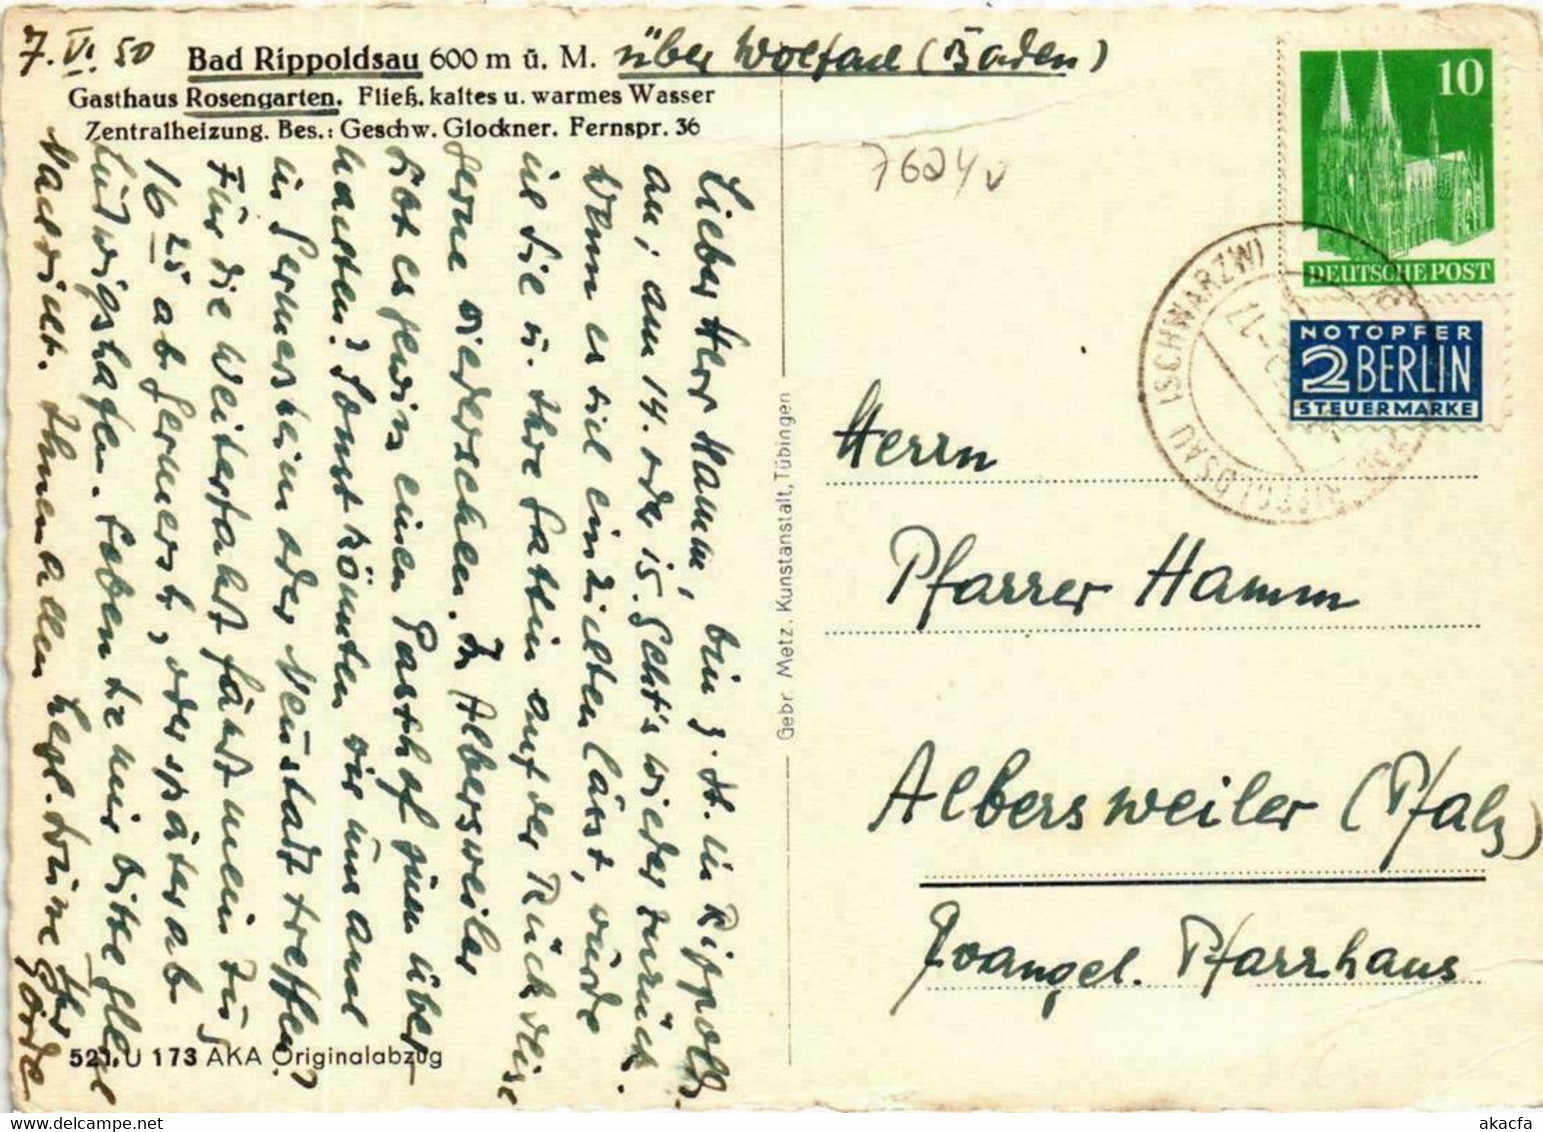 7. VI. 50
Bad Rippoldsau 600 m ü. M. über Wolfach (Baden)
Gasthaus Rosengarten. Fließ. kaltes u. warmes Wasser
Zentralheizung. Bes.: Geschw. Glockner. Fernspr. 36
Lieber Herr Hamm, bin z. Zt. in Rippolds-
au; am 14. oder 15. geht's wieder zurück.
Wenn es sich einrichten lässt, würde
ich Sie u. Ihre Gattin auf der Rückreise
gerne wiedersehen. In Albersweiler
gibt es gewiss einen Gasthof zum über
nachten? Sonst könnten wir uns auch
in Germersheim oder Neustadt treffen?
Für die Weiterfahrt fährt mein Zug
16 25 ab Germersh., oder später ab
Ludwigshafen. Geben Sie mir bitte
Nachricht. Ihnen allen herzl. Grüße Ihr
521. U 173 AKA Originalabzug
Gebr. Metz, Kunstanstalt, Tübingen
7624
10
DEUTSCHE POST
NOTOPFER
2 BERLIN
STEUERMARKE
BAD RIPPOLDSAU (SCHWARZW)
-17
Herrn
Pfarrer Hamm
Albersweiler (Pfalz)
Evangel. Pfarrhaus
akacfa